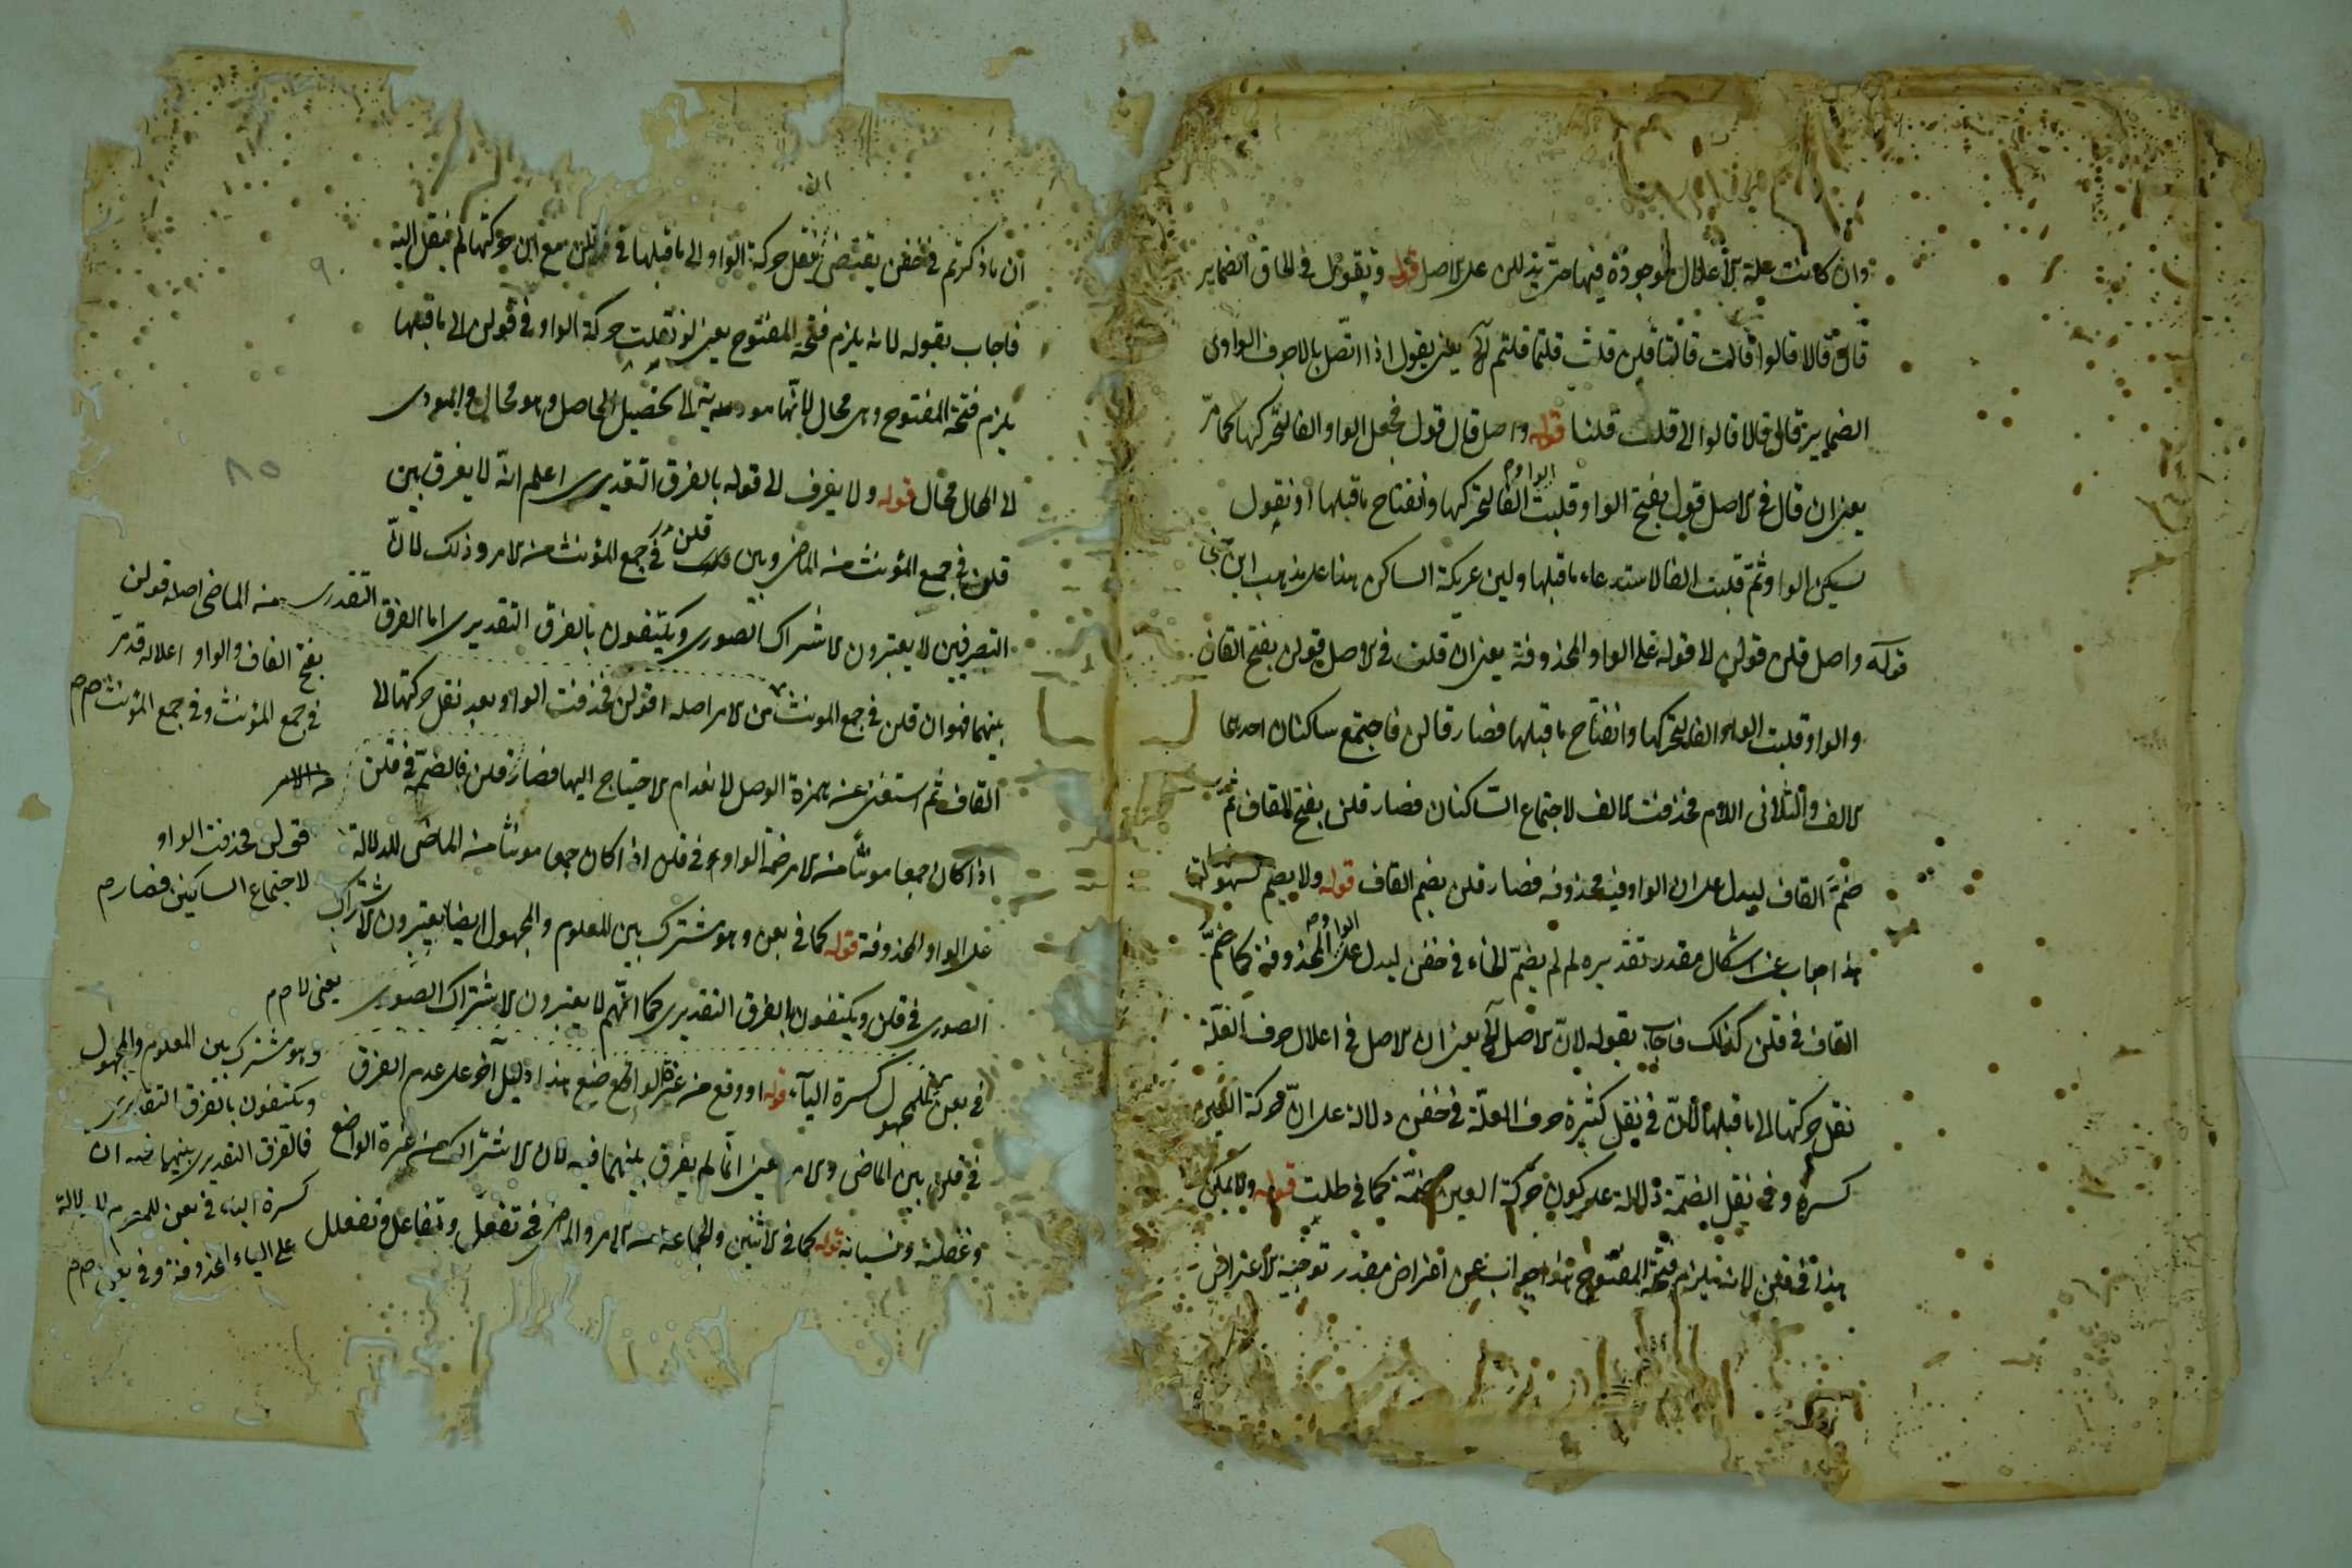 وان كانت علة الاعلال موجودة فيها حتى يدللن على الاصل قوله وتقول فى الحاق الضماير
قال قالا قالوا قالت قالتا قلن قلت قلتما قلتم الخ يعنى يقول اذا اتصل بالاجوف الواوى
الضماير قال قالا قالوا الى قلت قلنا قوله واصل قال قول فجعل الواو الفا لتحركها كما مرّ
يعنى ان قال فى الاصل قول بفتح الواو قلبت الواو الفا لتحركها وانفتاح ما قبلها او نقول
تسكين الواو ثم قلبت الفا لاستدعاء ما قبلها ولين عريكة الساكن هذا على مذهب ابن جنى
قوله واصل قلن قولن الى قوله على الواو المحذوفة يعنى ان قلن فى الاصل قولن بفتح القاف
والواو قلبت الواو الفا لتحركها وانفتاح ما قبلها فصار قالن فاجتمع ساكنان احدها
الالف والثانى اللام فحذفت الالف لاجتماع الساكنان فصار قلن بفتح القاف ثم
ضمّ القاف ليدل على ان الواو فيه محذوفة فصار قلن بضم القاف قوله ولا يضم
هذا جواب عن اشكال مقدر تقديره لم لم يضمّ الخاء فى خفن ليدل على الواو المحذوفة كما ضمّ
القاف فى قلن كذلك فاجاب بقوله لانّ الاصل الخ يعنى ان الاصل فى اعلال حرف العلّة
نقل حركتها الى ما قبلها لانّ فى نقل كسرة حرف العلّة فى خفن دلالة على انّ حركة العين
كسرة وفى نقل الضمّة دلالة على كون حركة العين ضمّة كما فى طلت قوله ولا يمكن
هذا فى قلن لانه يلزم فتحة المفتوح هذا جواب عن اعراض مقدر توجيه الاعتراض
ان
ان ما ذكرتم فى خفن يقتضى نقل حركة الواو الى ما قبلها فى قلن مع ان حركتها لم ينقل اليه
فاجاب بقوله لانه يلزم فتحة المفتوح يعنى لو نقلت حركة الواو فى قولن الى ما قبلها
يلزم فتحة المفتوح وهى محال لانّها مودية الى تحصيل الحاصل وهو محال والمودى
الى المحال محال قوله ولا يفرق الى قوله بالفرق التقديرى اعلم انّه لا يفرق بين
قلن فى جمع المؤنث من الماضى وبين قلن فى جمع المؤنث من الامر وذلك لانّ
التصرفيين لا يعتبرون الاشتراك الصورى ويكتفون بالفرق التقديرى اما الفرق التقدرى
بينهما فهو ان قلن فى جمع المونث من الامر اصله اقولن فحذفت الواو بعد نقل حركتها الى
القاف ثم استغنى عنه همزة الوصل لانعدام الاحتياج اليها فصار قلن فالضمّة فى قلن
اذا كان جمعا مونثا من الامر ضمة الواو وفى قلن اذا كان جمعا مونثا من الماضى للدلالة
على الواو المحذوفة قوله كما فى بعن وهو مشترك بين المعلوم والمجهول ايضا يعتبرون الاشتراك
الصورى فى قلن ويكتفون بالفرق التقديرى كما انّهم لا يعتبرون الاشتراك الصورى
فى بعن للمجهول كسرة الياء قوله او وقع من غرة الواضع هذا دليل آخر على عدم الفرق
فى قلن بين الماضى والامر يعنى انّما لم يفرق بينهما فيه لان الاشتراك من غرة الواضع
وغفلته ونسيانه قوله كما فى الاثنين والجماعة من الامر والماضى فى تفعل وتفاعل وتفعلل
٩٠
٨٥
من الماضى اصله قولن
بفتح القاف والواو اعلاله قد مرّ
فى جمع المؤنث وفى جمع المؤنث
من الامر
قولن فحذفت الواو
لاجتماع الساكنين فصار
يعنى لا
وهو مشترك بين المعلوم والمجهول
ويكتفون بالفرق التقديرى
فالفرق التقديرى بينهما فيه ان
كسرة الباء فى بعن للدلالة
على الياء المحذوفة وفى بعن